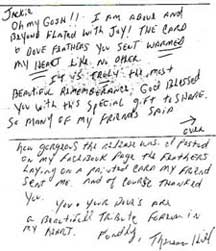 Jackie
Oh my Gosh!! I am above and
beyond elated with Joy! The card
& Dove feathers you sent warmed
my heart like no other.
It is truly the most
Beautiful Rememberance; God Blessed
you with this special gift to share.
So many of my friends said
→
over
how gorgeous the release was. I posted
on my Facebook page the feathers
laying on a printed card my friend
sent me. And of course thanked
you.
You & your Dove's are
a Beautiful Tribute forever in
my heart.
Fondly,